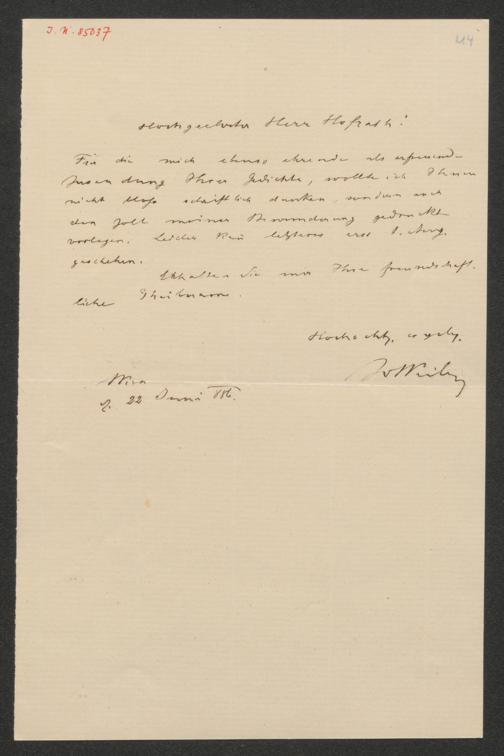 I. N. 85037
Hochgeehrter Herr Hofrath!
Für die mich ebenso ehrende als erfreuende
Zusendung Ihrer Gedichte, wollte ich Ihnen
nicht bloß schriftlich danken, sondern auch
den Zoll meiner Bewunderung gedruckt
vorlegen. Leider kan letzteres erst 1. Aug.
geschehen.
Erhalten Sie mir Ihre freundschaft-
liche Theilnahme.
Hochacht.
Wien
d. 22 Juni